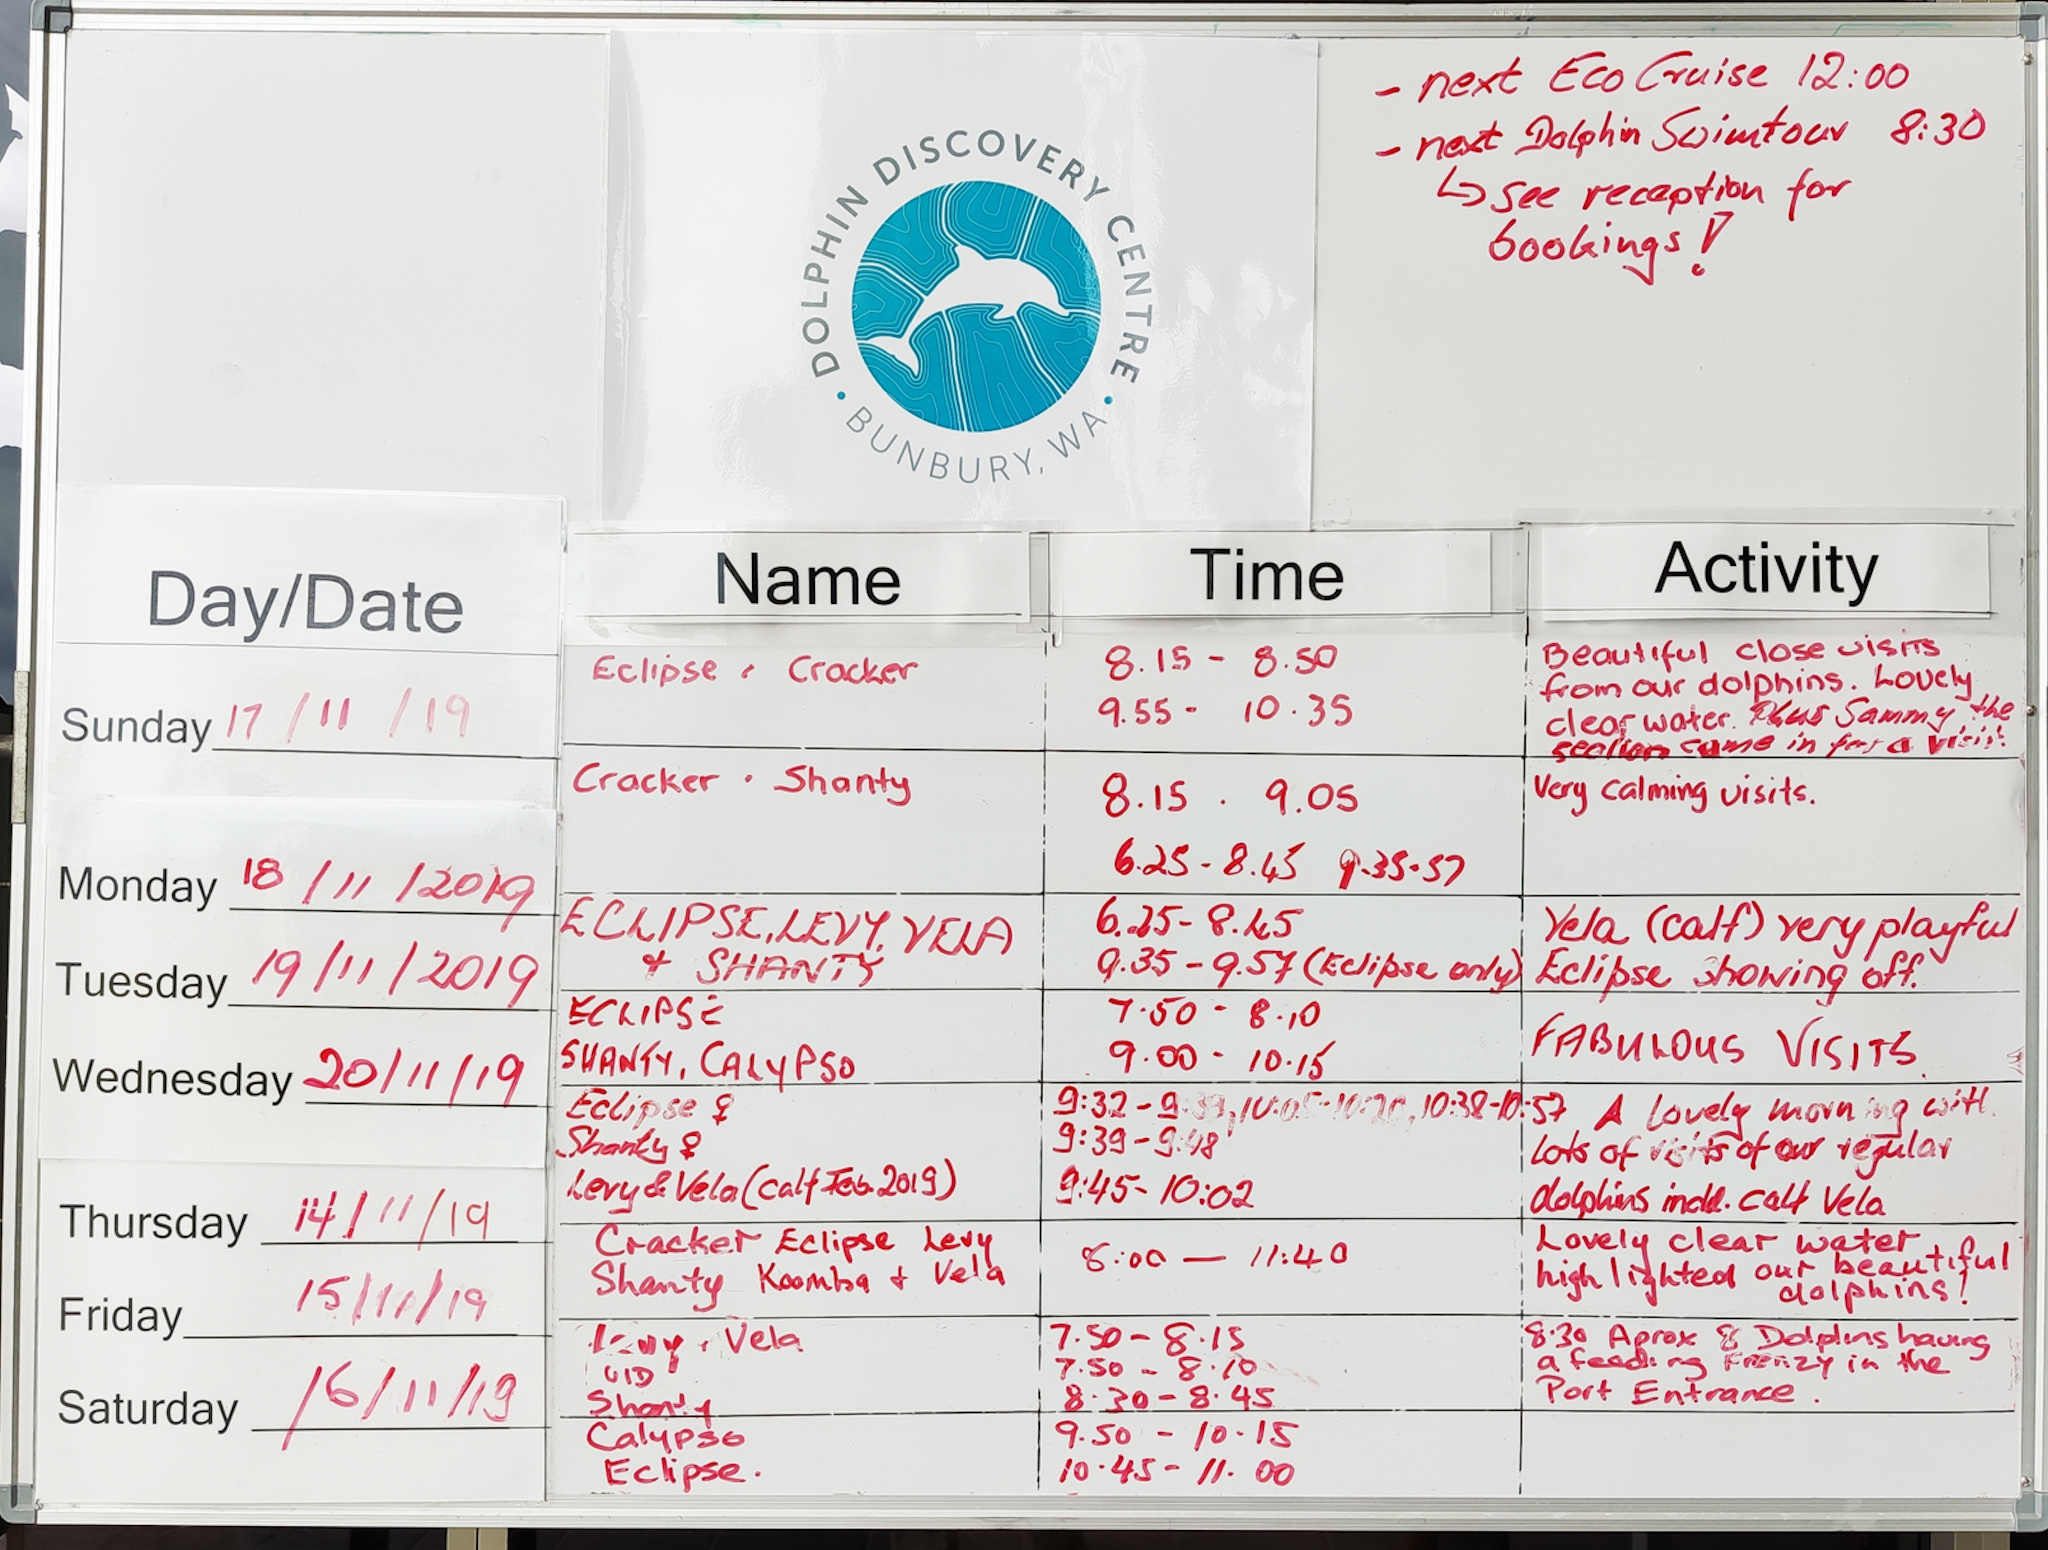 - next Eco Cruise 12:00
- next Dolphin Swimtour 8:30
↳ see reception for
bookings!
DOLPHIN DISCOVERY CENTRE
• BUNBURY, WA •
Day/Date Name Time Activity
Sunday 17/11/19
Eclipse · Cracker
8.15 - 8.50
9.55 - 10.35
Beautiful close visits
from our dolphins. Lovely
clear water. Plus Sammy the
sealion came in for a visit.
Monday 18/11/2019
Cracker · Shanty
8.15 . 9.05
6.25 - 8.45 9.35-57
Very calming visits.
Tuesday 19/11/2019
ECLIPSE, LEVY, VELA
+ SHANTY
6.25 - 8.45
9.35 - 9.57 (Eclipse only)
Vela (calf) very playful
Eclipse showing off.
Wednesday 20/11/19
ECLIPSE
SHANTY, CALYPSO
7.50 - 8.10
9.00 - 10.15
FABULOUS VISITS.
Thursday 14/11/19
Eclipse ♀
Shanty ♀
Levy & Vela (calf Feb. 2019)
9:32 - 10:38-10:57
9:39 - 9:48
9:45 - 10:02
A Lovely morning with
lots of visits of our regular
dolphins incl. calf Vela
Friday 15/11/19
Cracker Eclipse Levy
Shanty Koomba + Vela
8:00 — 11:40
Lovely clear water
highlighted our beautiful
dolphins!
Saturday 16/11/19
Levy · Vela
Shanty
Calypso
Eclipse.
7.50 - 8.15
7.50 - 8.10
8.30 - 8.45
9.50 - 10.15
10.45 - 11.00
8.30 Aprox 8 Dolphins having
a feeding Frenzy in the
Port Entrance.